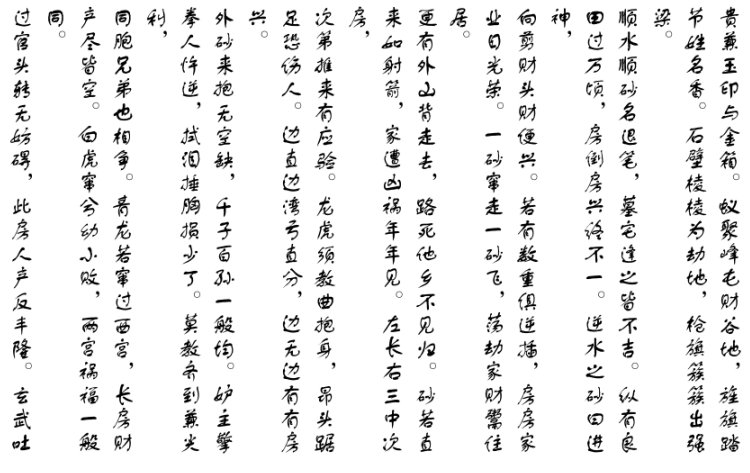 贵兼玉印与金箱。蚁聚峰屯财谷地，旌旗踏
节姓名香。石壁棱棱为劫地，枪旗簇簇出强
梁。
顺水顺砂名退笔，墓宅逢之皆不吉。纵有良
田过万顷，房倒房兴终不一。逆水之砂曰进
神，
向剪财头财便兴。若有数重俱逆插，房房家
业日光荣。一砂窜走一砂飞，荡劫家财鬻住
居。
更有外山背走去，路死他乡不见归。砂若直
来如射箭，家遭凶祸年年见。左长右三中次
房，
次第推来有应验。龙虎须教曲抱身，昂头踞
足恐伤人。边直边湾亏直分，边无边有有房
兴。
外砂来抱无空缺，千子百孙一般均。妒主擎
拳人忤逆，拭泪捶胸损少丁。莫教齐到兼尖
利，
同胞兄弟也相争。青龙若窜过西宫，长房财
产尽皆空。白虎窜兮幼小败，两宫祸福一般
同。
过宫头转无妨碍，此房人产反丰隆。玄武吐